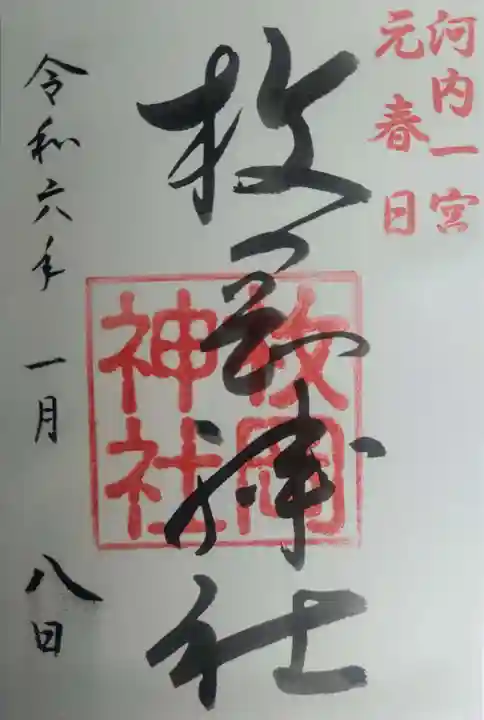 河内一宮
元春日
枚岡神社
枚岡
神社
令和六年一月八日